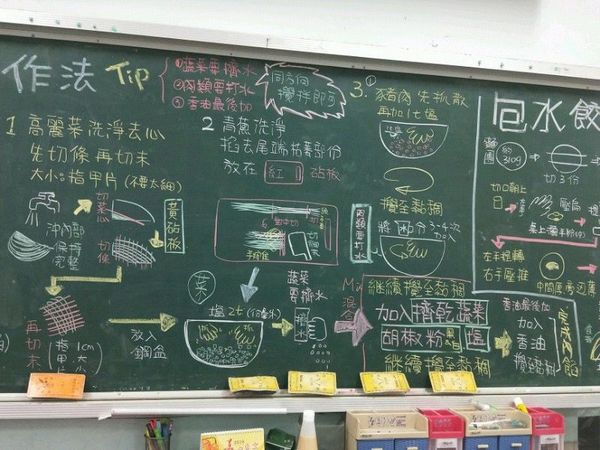 作法 Tip
①蔬菜要擠水
②肉類要打水
③香油最後加
同方向
攪拌即可
1 高麗菜洗淨去心
先切條 再切末
大小:指甲片(不要太細)
切菜心
黃砧板
沖內部
保持完整
切條
再切末
(指甲片大小)
放入
鋼盆
2 青蔥洗淨
掐去尾端枯萎部份
放在 紅 砧板
菜
塩2t
蔬菜
要擠水
3. ①
豬肉先抓散
再加1t塩
攪至黏稠
肉類要打水
將水分3-4次
加入
繼續攪至黏稠
加入擠乾蔬菜
胡椒粉 塩
繼續攪至黏稠
香油最後加
加入
香油
包水餃
約310g
切3份
切口朝上
壓扁
左手捏轉
右手壓推
中間厚旁邊薄